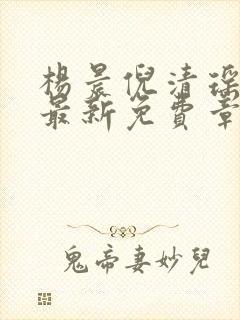 楊晨倪清瑶
最新免費章
鬼帝妻妙兒